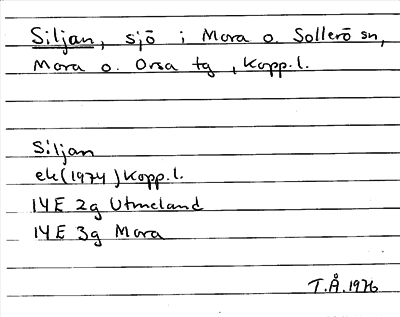 Siljan, sjö i Mora o. Sollerö sn,
Mora o. Orsa tg, Kopp.l.
Siljan
ek (1974) Kopp.l.
14E 2g Utmeland
14E 3g Mora
T.Å. 1976